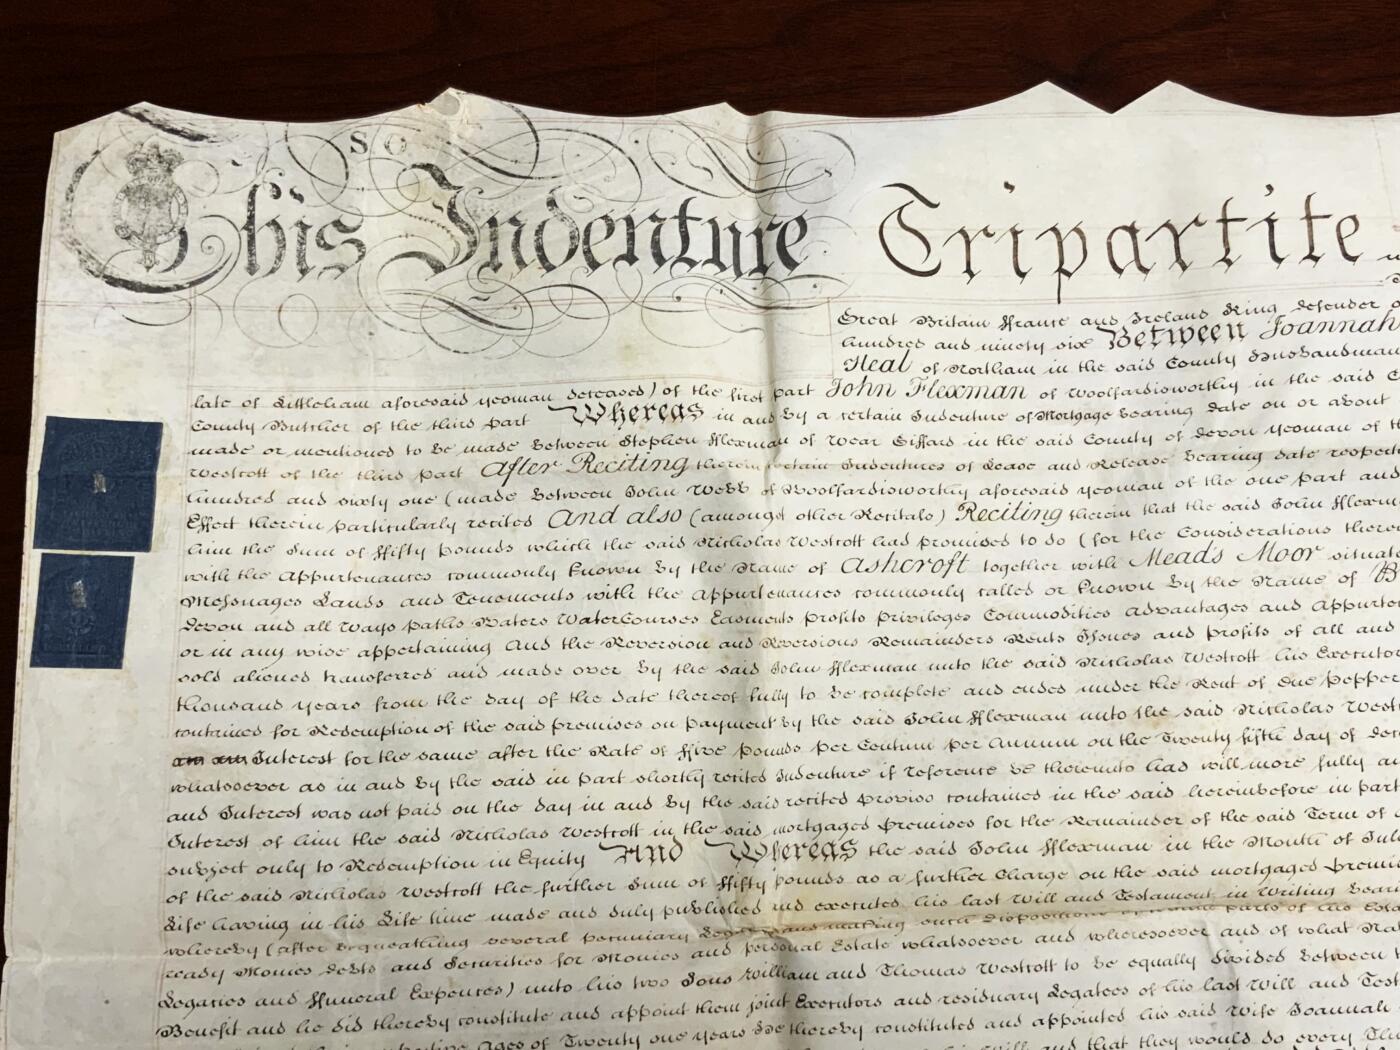 This Indenture Tripartite
Great Britain France and Ireland King defender of
hundred and ninety six Between Joannah
Heal of Northam in the said County Husbandman
late of Littleham aforesaid yeoman deceased) of the first part John Flexman of Woolfardisworthy in the said
County Butcher of the third part Whereas in and by a certain Indenture of Mortgage bearing date on or about
made or mentioned to be made Between Stephen Flexman of Wear Giffard in the said County of devon yeoman of
Westcott of the third part After Reciting therein certain Indentures of Lease and Release bearing date
hundred and sixty one (made Between John Webb of Woolfardisworthy aforesaid yeoman of the one part and
Effect therein particularly recited And also (amongst other Recitals) Reciting therein that the said John
him the Sum of ffifty pounds which the said Nicholas Westcott had promised to do (for the Considerations
with the Appurtenances commonly known by the Name of Ashcroft together with Mead's Moor situate
Messuages Lands and Tenements with the Appurtenances commonly called or known By the Name of
Devon and all Ways paths Waters WaterCourses Easments profits privileges Commodities advantages and
or in any wise appertaining And the Reversion and Reversions Remainders Rents Issues and profits of all and
sold aliened transferred and made over By the said John fflexman unto the said Nicholas Westcott his
thousand years from the day of the date thereof fully to be complete and ended under the Rent of One pepper
contained for Redemption of the said premises on payment by the said John fflexman unto the said Nicholas
Interest for the same after the Rate of ffive pounds per Centum per Annum on the Twenty fifth day of
whatsoever as in and By the said in part shortly recited Indenture if reference be thereunto had will more fully
and Interest was not paid on the day in and by the said recited proviso contained in the said hereinbefore in part
Interest of him the said Nicholas Westcott in the said mortgaged premises for the Remainder of the said Term of
subject only to Redemption in Equity And Whereas the said John fflexman in the Month of
of the said Nicholas Westcott the further Sum of ffifty pounds as a further Charge on the said mortgaged
Life having in his Life time made and duly published and executed his last Will and Testament in Writing
whereby (after bequeathing several pecuniary making such parts of his
ready Monies debts and Securities for Monies and personal Estate whatsoever and wheresoever and of what
Legacies and ffuneral Expences) unto his two Sons William and Thomas Westcott to be equally divided between
Benefit and he did thereby constitute and appoint them joint Executors and residuary Legatees of his last Will and
Ages of Twenty one years he thereby constituted and appointed his said Wife Joannah
and that they would do every